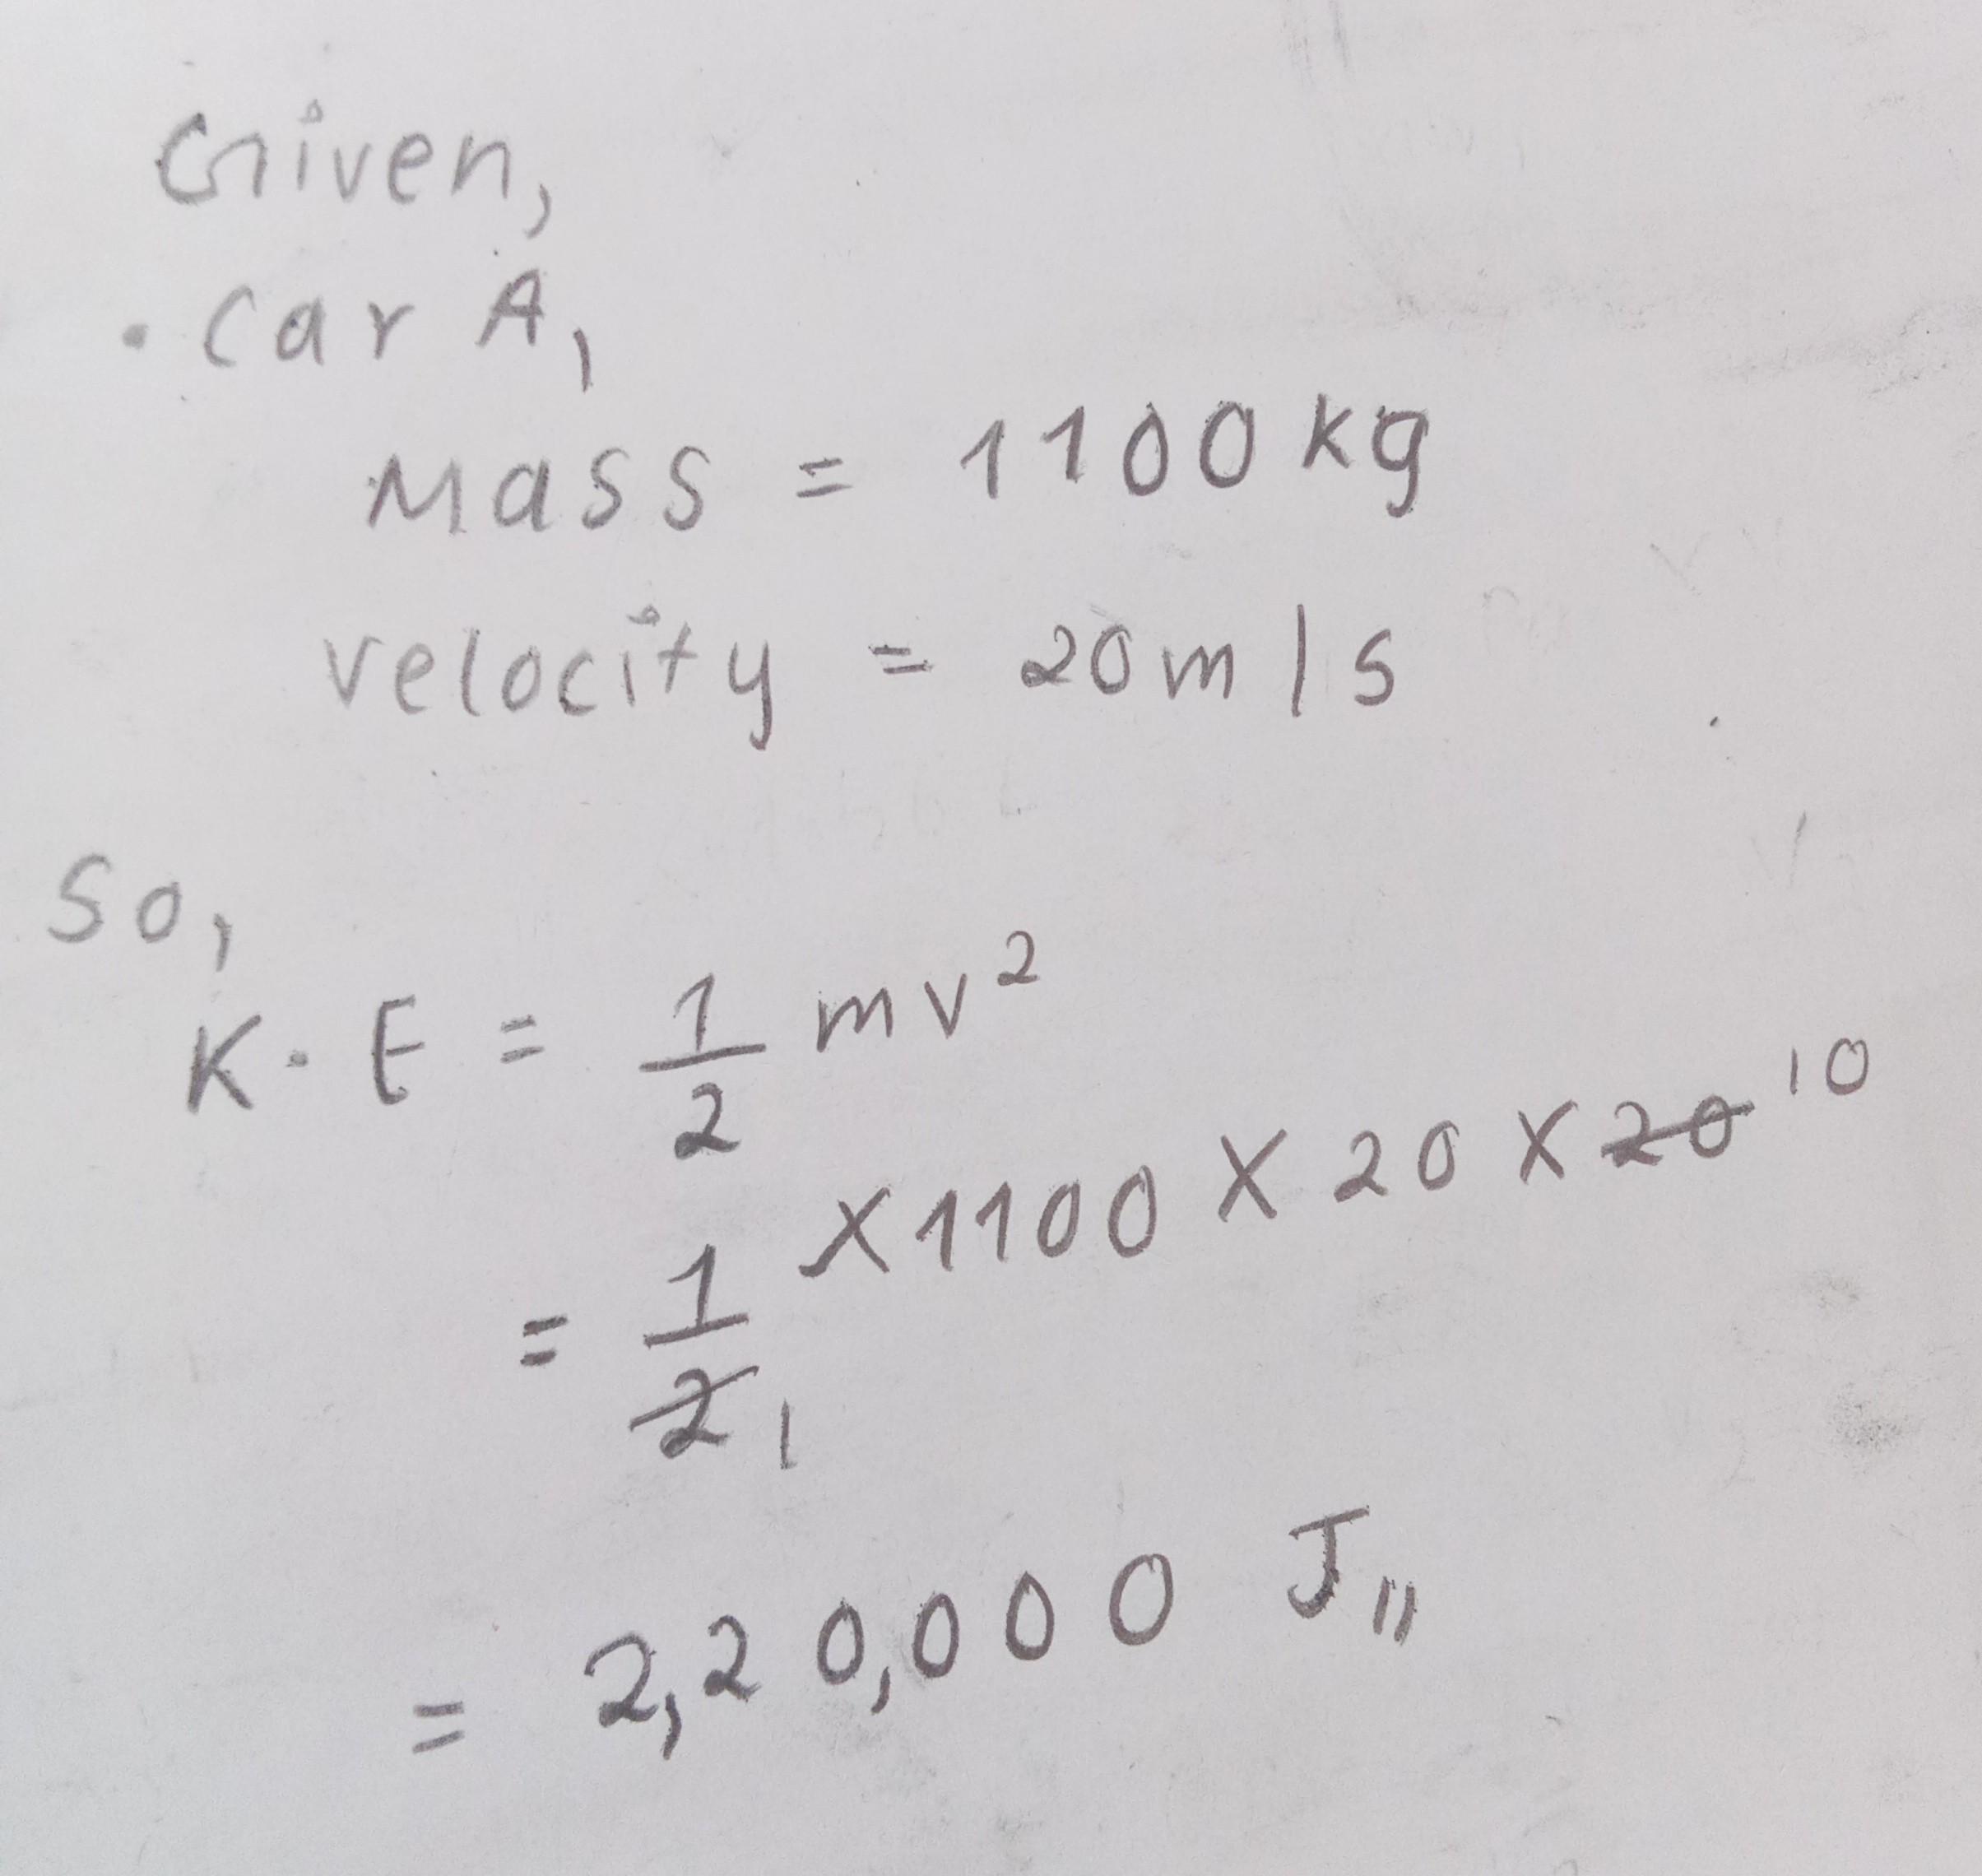 Given,
• Car A,
Mass = 1100 kg
velocity = 20 m/s
So,
K.E = 1/2 mv²
= 1/2 1 x 1100 x 20 x 20 10
= 2,20,000 J,,